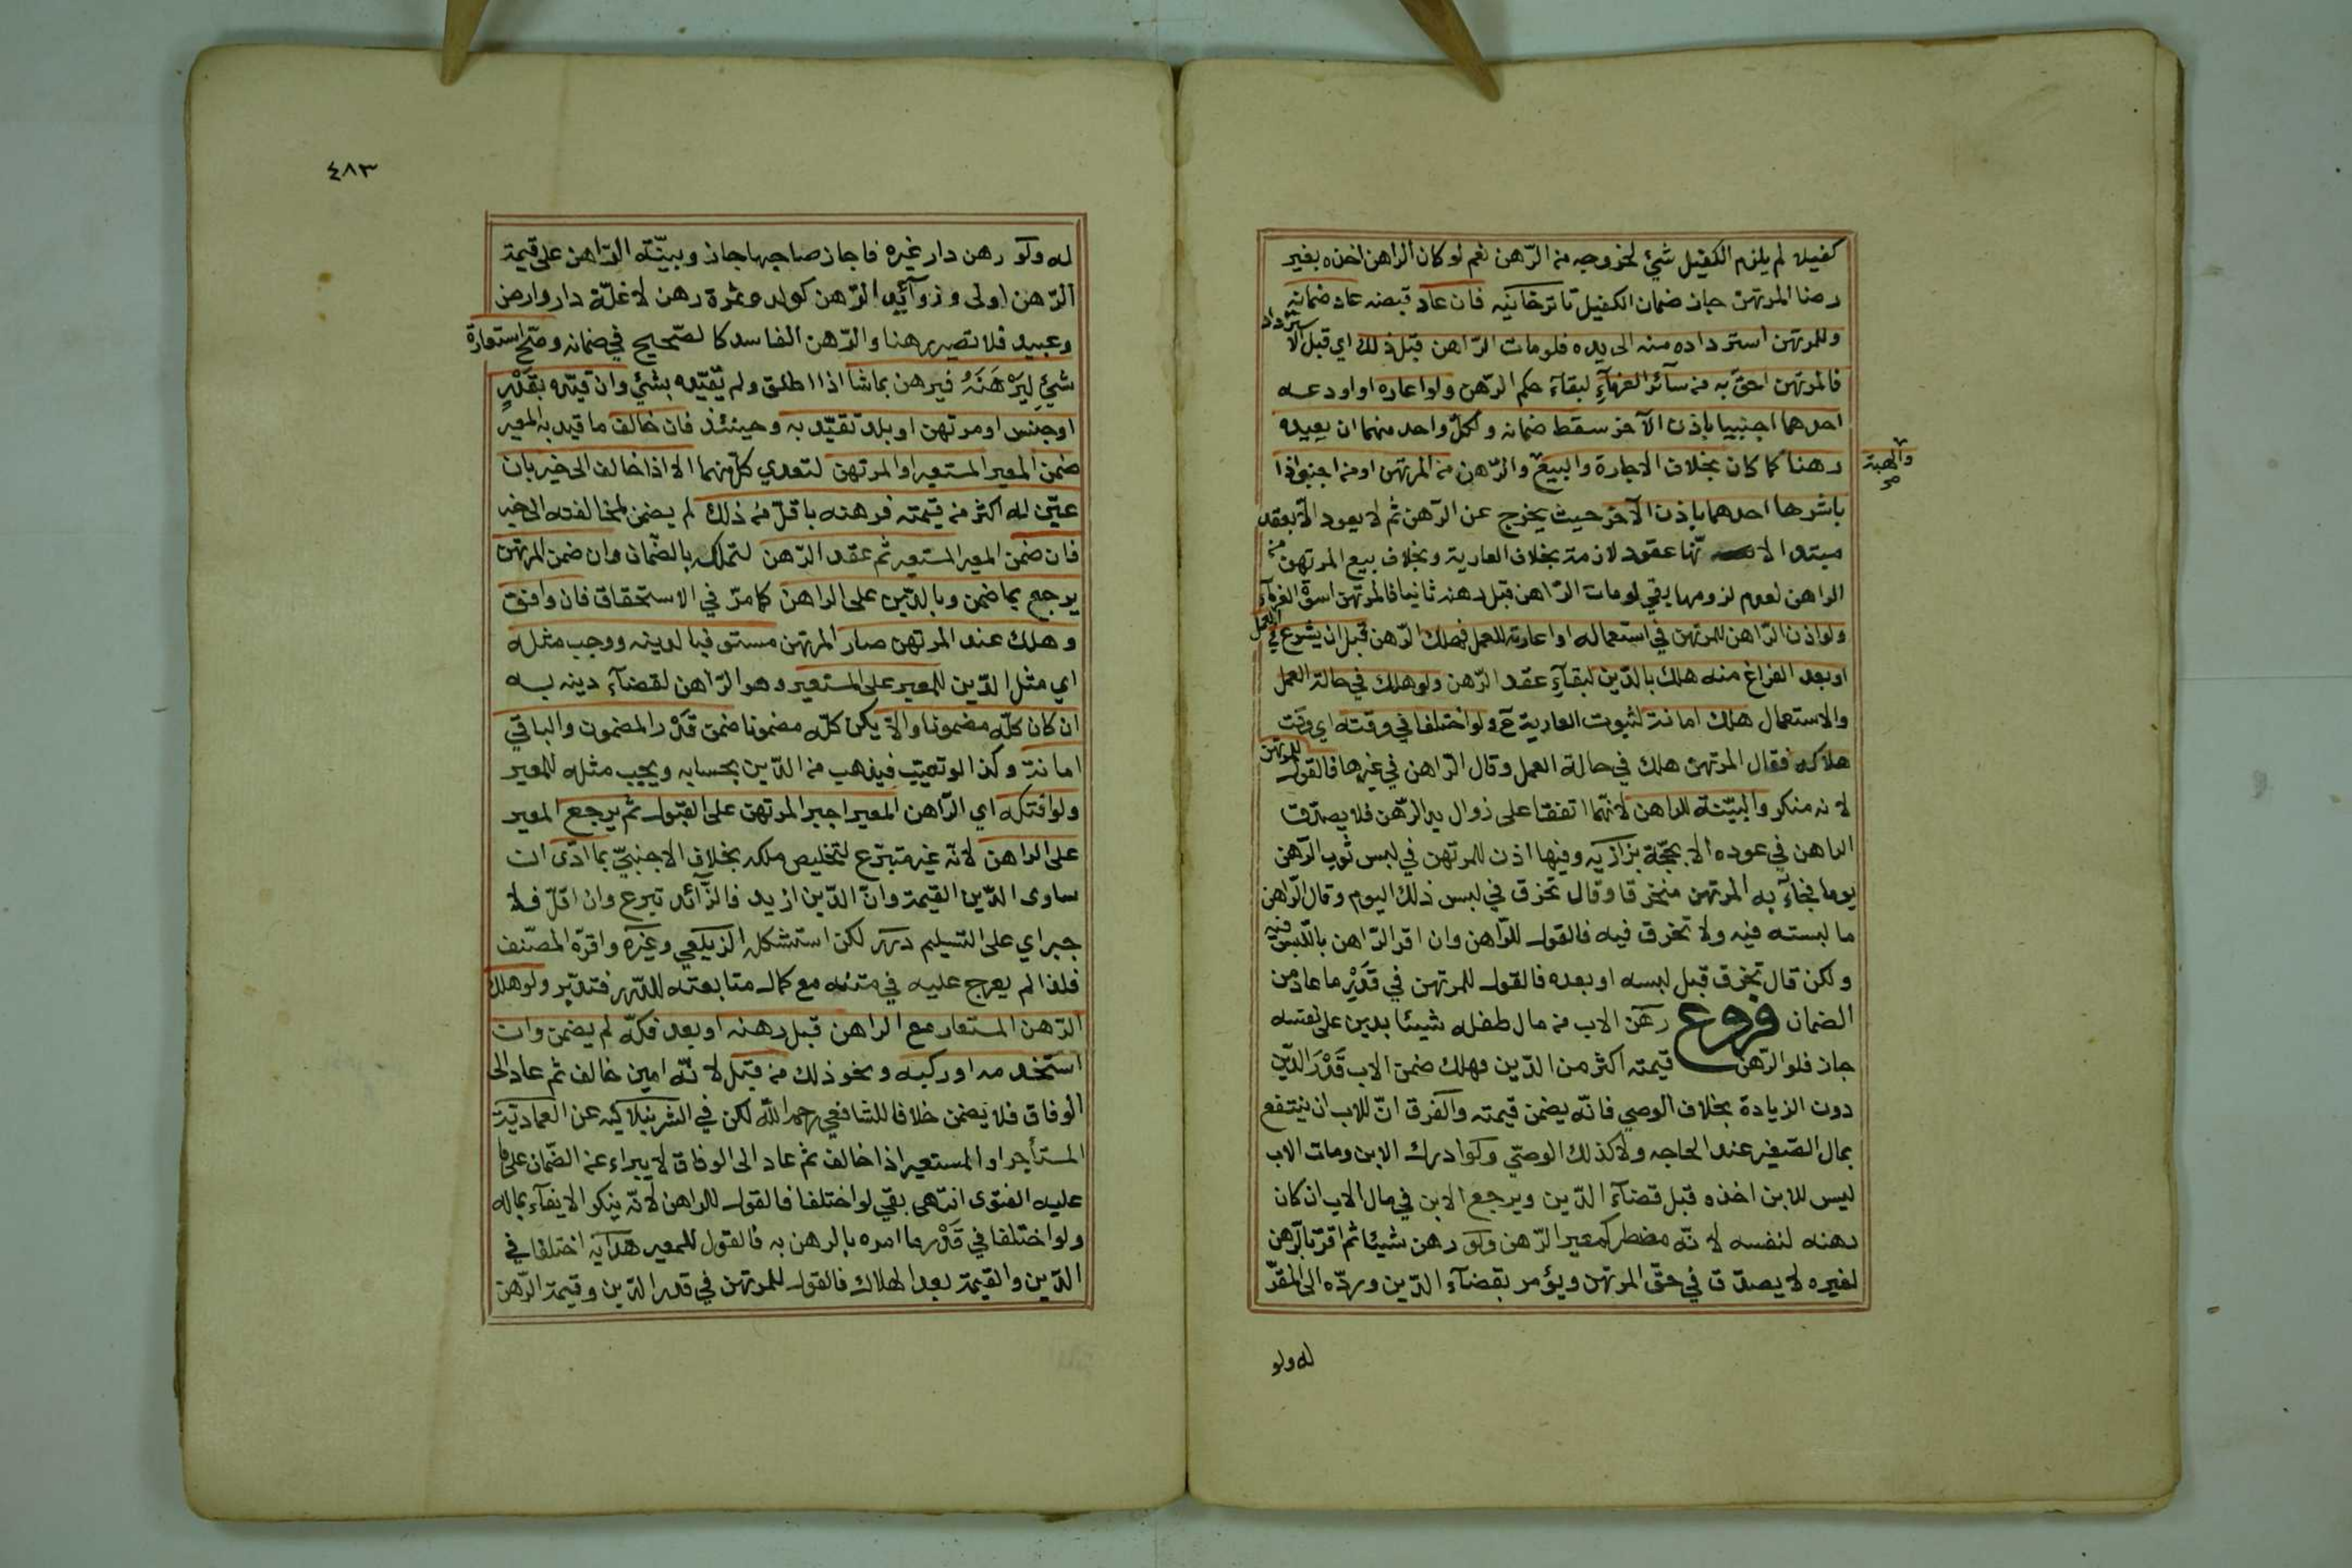 كفيلا لم يلزم الكفيل شئ لخروجه من الرّهن نعم لو كان الراهن اخذه بغير
رضا المرتهن جاز ضمان الكفيل تاترخانيه فان عاد قبضه عاد ضمانه
وللمرتهن استرداده منه الى يده فلو مات الرّاهن قبل ذلك اي قبل الا
ستردا د
فالمرتهن احقّ به من سآئر الغرمآءِ لبقآء حكم الرّهن ولو اعاره او اودعه
احدهما اجنبيا باذن الآخر سقط ضمانه ولكلّ واحد منهما ان يعيده
رهنا كما كان بخلاف الاجارة والبيع والرّهن من المرتهن او من اجنبي اذا
والهبة
صح
باشرها احدهما باذن الآخر حيث يخرج عن الرّهن ثم لا يعود الّا بعقد
مبتدا لانّها عقود لازمة بخلاف العارية وبخلاف بيع المرتهن من
الراهن لعدم لزومها بقي لو مات الرّاهن قبل رهنه ثانيا فالمرتهن اسوة الغرمآء
ولو اذن الرّاهن للمرتهن في استعماله او اعارته للعمل فهلك الرّهن قبل ان يشرع في
العمل
او بعد الفراغ منه هلك بالدّين لبقآءِ عقد الرّهن ولو هلك في حالة العمل
والاستعمال هلك امانة لثبوت العارية ح ولو اختلفا في وقته اي وقت
هلاكه فقال المرتهن هلك في حالة العمل وقال الرّاهن في غيرها فالقول
للمرتهن
لانه منكر والبيّنة للراهن لانّهما اتفقا على زوال يد الرّهن فلا يصدّق
الراهن في عوده الا بحجّة بزازيه وفيها اذن للمرتهن في لبس ثوب الرّهن
يوما فجآء به المرتهن منخرقا وقال تخرق في لبس ذلك اليوم وقال الرّاهن
ما لبسته فيه ولا تخرق فيه فالقول للرّاهن وان اقر الرّاهن باللّبس فيه
ولكن قال تخرق قبل لبسه او بعده فالقول للمرتهن في قَدْرِ ما عاد من
الضمان فروع رهن الاب من مال طفله شيئا بدين على نفسه
جاز فلو الرّهن قيمته اكثر من الدّين فهلك ضمن الاب قَدْرَ الدّين
دون الزيادة بخلاف الوصي فانّه يضمن قيمته والفرق انّ للاب ان ينتفع
بمال الصّغير عند الحاجه ولا كذلك الوصيّ ولو ادرك الابن ومات الاب
ليس للابن اخذه قبل قضآء الدّين ويرجع الابن في مال الاب ان كان
رهنه لنفسه لانّه مضطر كمعير الرّهن ولو رهن شيئا ثم اقرّ بالرّهن
لغيره لا يصدّق في حقّ المرتهن ويؤمر بقضآء الدّين وردّه الى المقرّ
له ولو
٤٨٣
له ولو رهن دار غيره فاجاز صاحبها جاز وبيّنة الرّاهن على قيمة
الرّهن اولى وزوآئد الرّهن كولد وثمرة رهن لا غلّة دار وارض
وعبيد فلا تصير رهنا والرّهن الفاسد كالصّحيح في ضمانه وصحّ استعارة
شئٍ لِيَرْهَنَهُ فيرهن بما شآ اذا اطلق ولم يقيّده بشئ وان قيّده بقَدْرٍ
او جنس او مرتهن او بلد تقيّد به وحينئذ فان خالف ما قيد به المعير
ضمن المعير المستعير او المرتهن لتعدي كلّ منهما الا اذا خالف الى خير بان
عيّن له اكثر من قيمته فرهنه باقلّ من ذلك لم يضمن لمخالفته الى خير
فان ضمن المعير المستعير ثم عقد الرّهن لتملكه بالضّمان وان ضمن المرتهن
يرجع بما ضمن وبالدّين على الراهن كما مرّ في الاستحقاق فان وافق
وهلك عند المرتهن صار المرتهن مستوفيا لدينه ووجب مثله
اي مثل الدّين للمعير على المستعير وهو الرّاهن لقضآءِ دينه به
ان كان كلّه مضمونا والّا يكن كلّه مضمونا ضمن قَدْر المضمون والباقي
امانة وكذا لو تعيّب فيذهب من الدّين بحسابه ويجب مثله للمعير
ولو افتكه اي الرّاهن المعير اجبر المرتهن على القبول ثم يرجع المعير
على الراهن لانّه غير متبرّع لتخليص ملكه بخلاف الاجنبيّ بما ادّى ان
ساوى الدّين القيمة وانّ الدّين ازيد فالزّآئد تبرع وان اقلّ فلا
جبر اي على التسليم درر لكن استشكله الزيلعي وغيره واقرّه المصّنف
فلذا لم يعرج عليه في متنه مع كمال متابعته للدّرر فتدبّر ولو هلك
الرّهن المستعار مع الراهن قبل رهنه او بعد فكّه لم يضمن وان
استخدمه او ركبه ونحو ذلك من قبل لانّه امين خالف ثم عاد الى
الوفاق فلا يضمن خلافا للشافعي رحمه اللّه لكن في الشرنبلاليه عن العماديّة
المستأجر او المستعير اذا خالف ثم عاد الى الوفاق لا يبراء عن الضّمان على ما
عليه الفتوى انتهى بقي لو اختلفا فالقول للراهن لانّه ينكر الايفآء بماله
ولو اختلفا في قَدْر ما امره بالرهن به فالقول للمعير هدايه اختلفا في
الدّين والقيمة بعد الهلاك فالقول للمرتهن في قدر الدّين وقيمة الرّهن